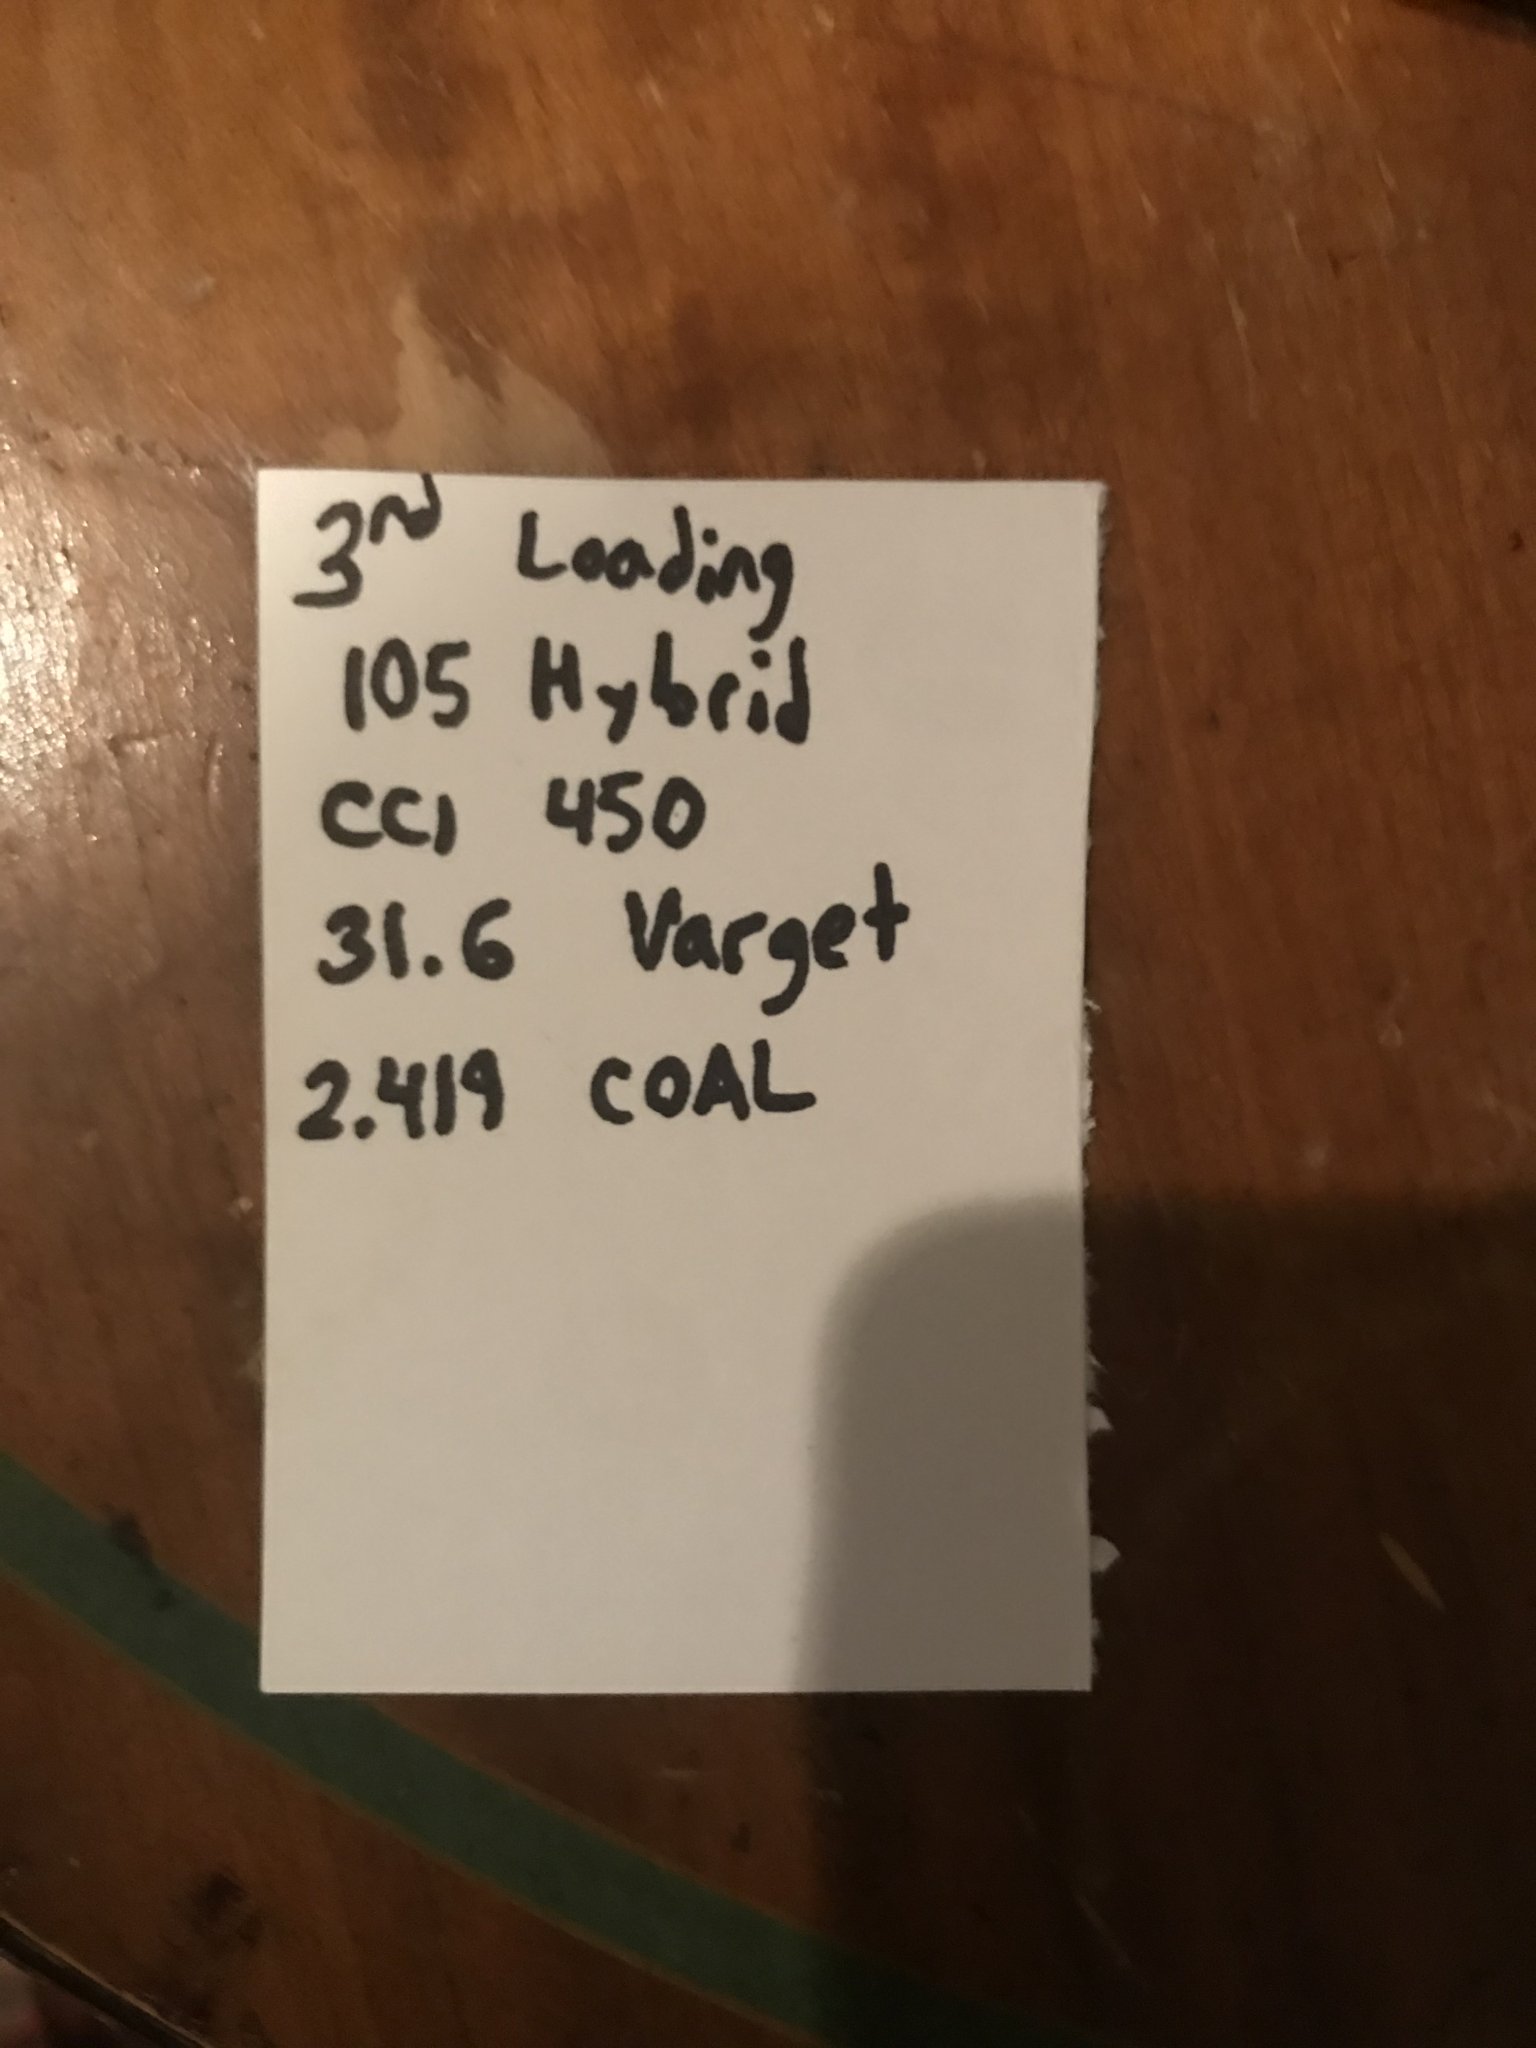 3rd Loading
105 Hybrid
CCI 450
31.6 Varget
2.419 COAL